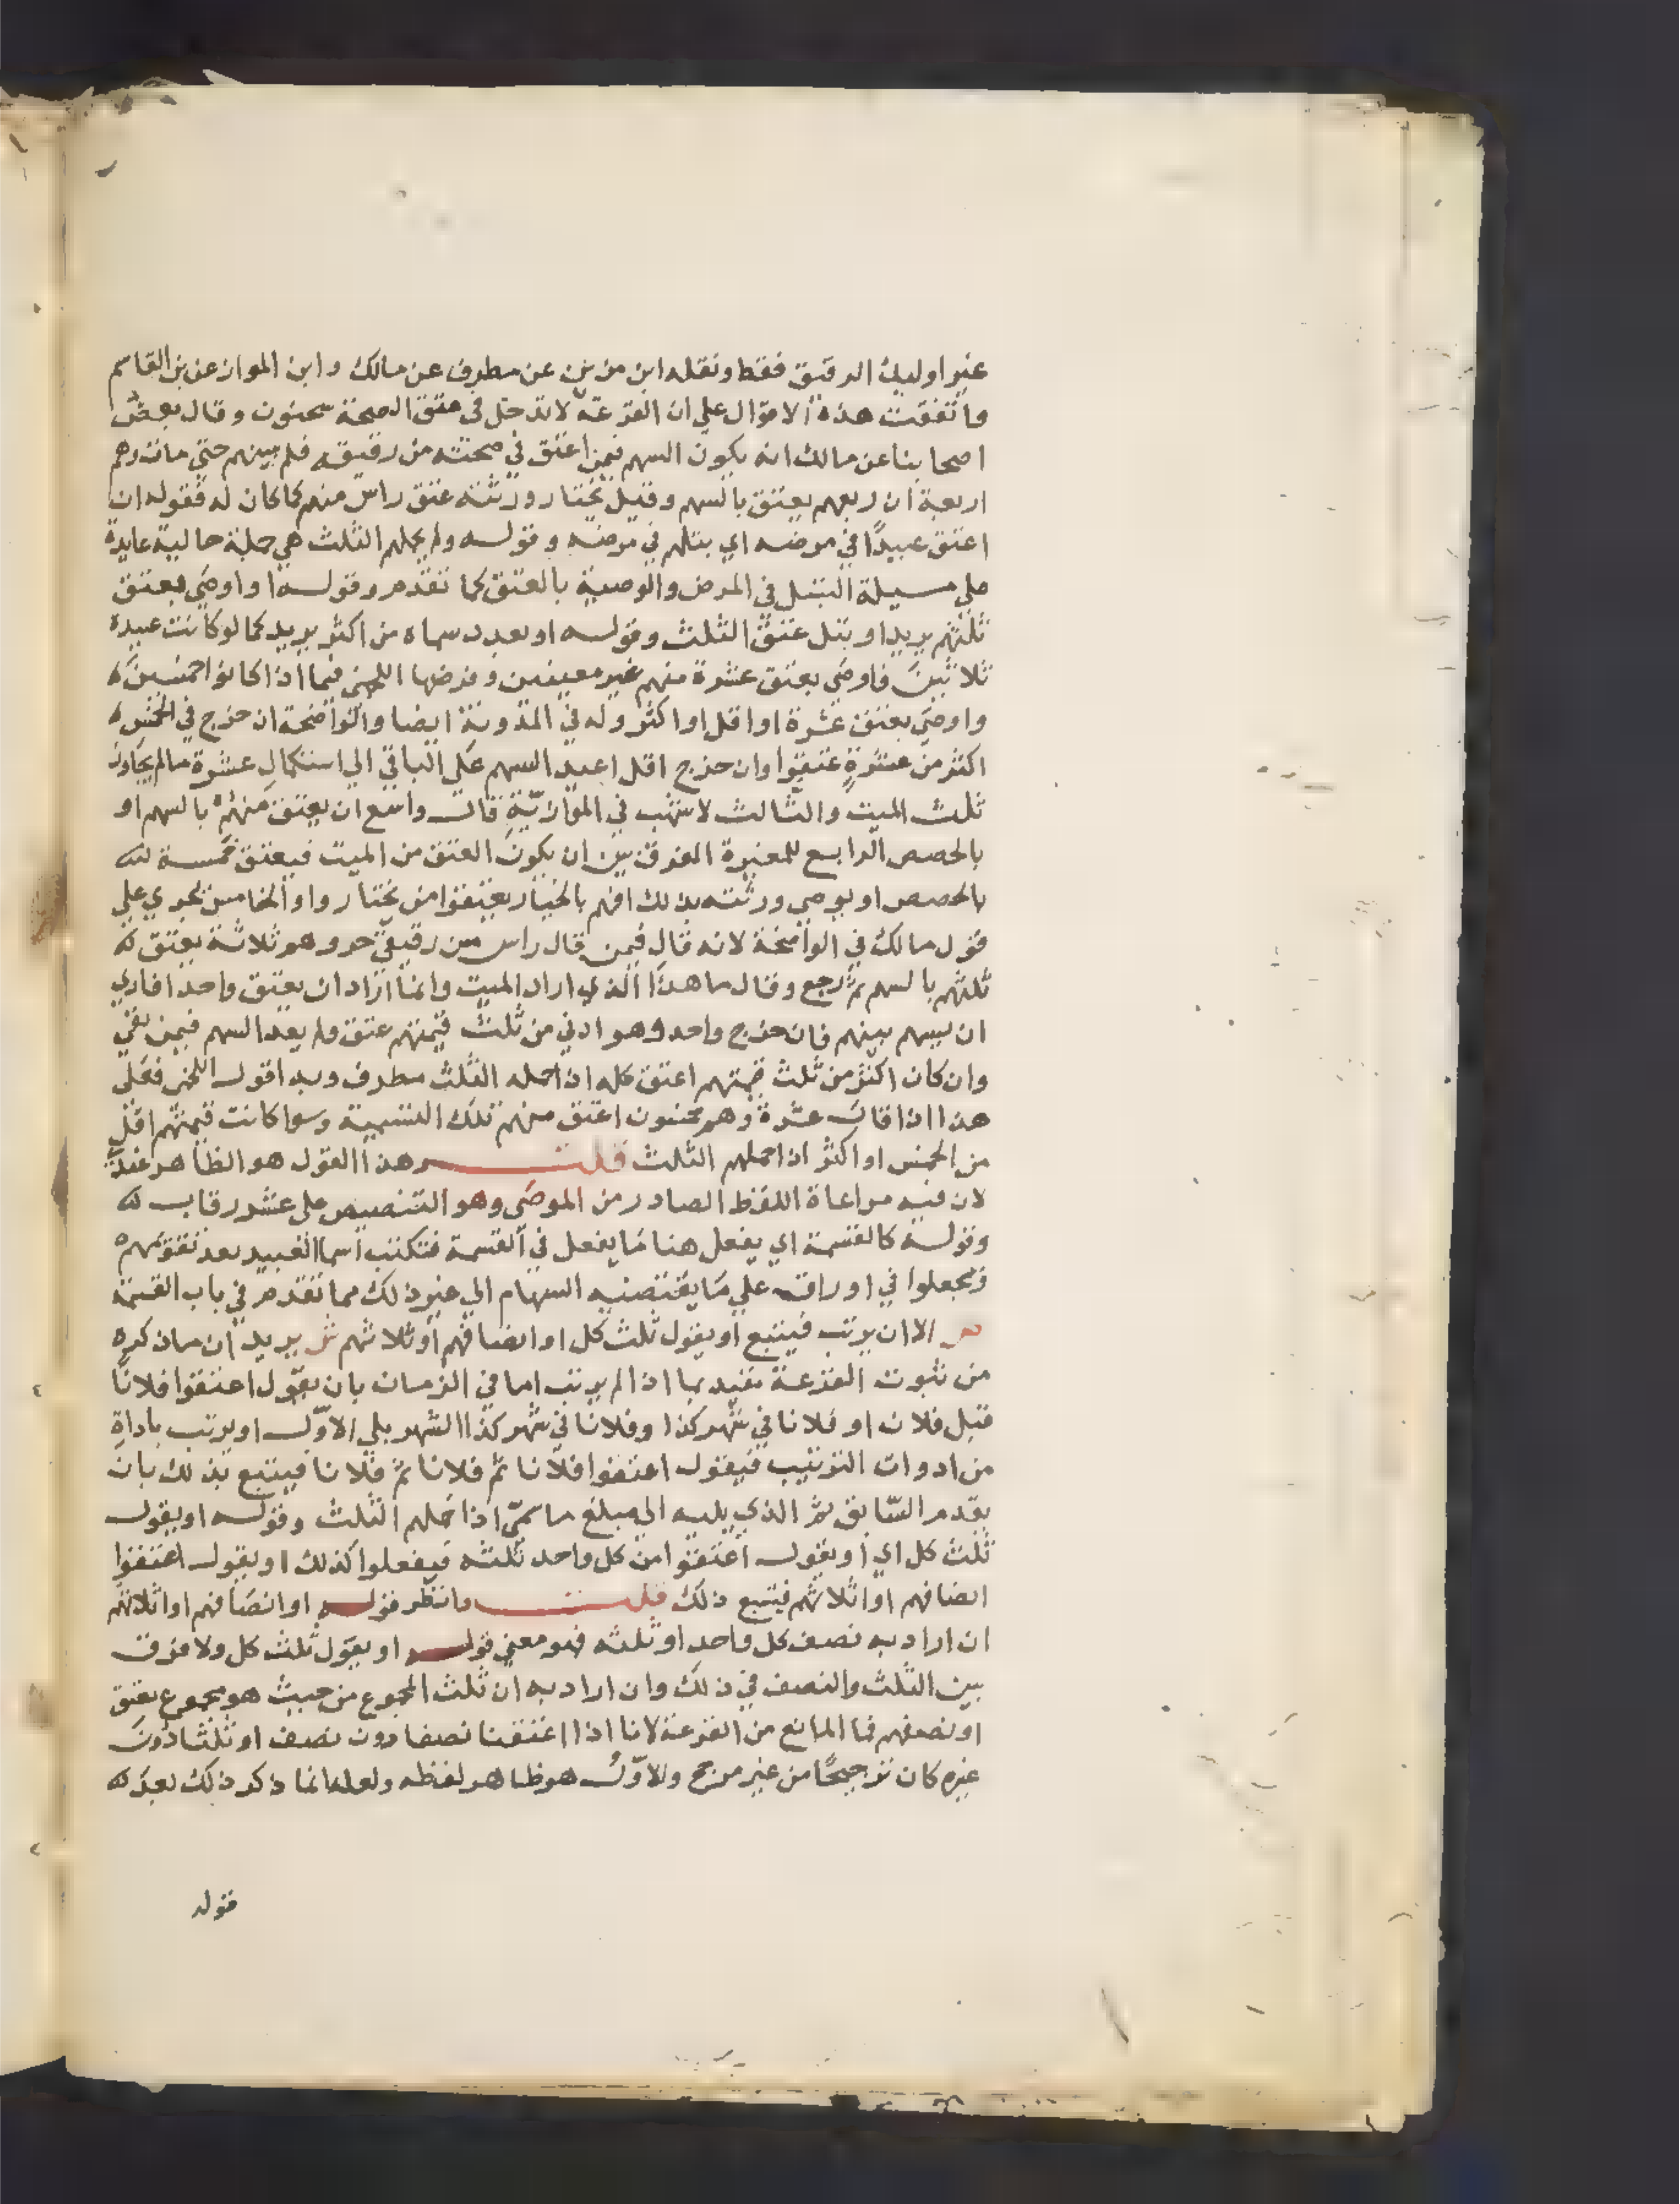 غير اوليك الرقيق فقط ونقله ابن مزين عن مطرف عن مالك وابن المواز عن بن القاسم
واتفقت هذه الاقوال علي ان القرعة لا تدخل في عتق الصحة سحنون وقال بعض
اصحابنا عن مالك انه يكون السهم فيمن اعتق في صحته من رقيقه فلم يبينهم حتي مات وهم
اربعة ان ربعهم يعتق بالسهم وقيل يختار ورثته عتق راس منهم كما كان له فقوله ان
اعتق عبيدًا في مرضه اي بتلهم في مرضه وقوله ولم يحملهم الثلث هي جملة حالية عايدة
علي مسيلة البتل في المرض والوصية بالعتق كما تقدم وقوله او اوصَي بعتق
ثلثهم يريد او بتل عتق الثلث وقوله او بعدد سماه من اكثر يريد كما لو كانت عبيده
ثلاثين فاوصَي بعتق عشرة منهم غير معينين وفرضها اللخمي فيما اذا كانوا خمسين
واوصَي بعتق عشرة او اقل او اكثر وله في المدونة ايضا والواضحة ان خرج في الخمس
اكثر من عشرةٍ عتقوا وان خرج اقل اعيد السهم علَي الباقي الي استكمال عشرة ما لم يجاوز
ثلث الميت والثالث لاشهب في الموازيّة قال واسع ان يعتق منهم بالسهم او
بالحصص الرابع للمغيرة الفرق بين ان يكون العتق من الميت فيعتق خمسة
بالحصص او يوصي ورثته بذلك افهم بالخيار يعتقوا من يختاروا والخامس يجري علي
قول مالك في الواضحة لانه قال فيمن قال راس من رقيقي حر وهو ثلاثة يعتق
ثلثهم بالسهم ثم رجع وقال ما هذا الذي اراد الميت وانما اراد ان يعتق واحد افاري
ان يسهم بينهم فان خرج واحد وهو ادني من ثلث قيمتهم عتق ولم يعد السهم فيمن بقي
وان كان اكثر من ثلث قيمتهم اعتق كله اذا حمله الثلث مطرف وبه اقول اللخمي فعَلي
هذا اذا قال عشرة وهم خمسون اعتق منهم تلك التسمية وسوا كانت قيمتهم اقل
من الخمس او اكثر اذا حملهم الثلث قلت وهذا القول هو الظاهر عندي
لان فيه مراعاة اللفظ الصادر من الموصَي وهو التنصيص علي عشر رقاب
وقوله كالقسمة اي يفعل هنا ما يفعل في القسمة فتكتب اسما العبيد بعد تقويمهم
ويجعلوا في اوراق علي مَا يقتضيه السهام الي غير ذلك مما تقدم في باب القسمة
ص الا ان يرتب فيتبع او يقول ثلث كل او انصافهم او ثلاثهم ش يريد ان ما ذكره
من ثبوت القرعة مقيد بما اذا لم يرتب اما في الزمان بان يقول اعتقوا فلانًا
قبل فلان او فلانا في شهر كذا وفلانا في شهر كذا الشهر يلي الاوّل او يرتب باداة
من ادوات الترتيب فيقول اعتقوا فلانا ثم فلانا ثم فلانا فيتبع بذلك بان
يقدم السّابق ثم الذي يليه الي مبلغ ما سمّي اذا حملهم الثلث وقوله او يقول
ثلث كل اي او يقول اعتقوا من كل واحد ثلثه فيفعلوا كذلك او يقول اعتقوا
انصافهم او اثلاثهم فيتبع ذلك قلت وانظر قوله او انصَافهم او اثلاثهم
ان اراد به نصف كل واحد او ثلثه فهو معني قوله او يقول ثلث كل ولا فرق
بين الثلث والنصف في ذلك وان اراد به ان ثلث المجموع من حيث هو مجموع يعتق
او نصفهم فما المانع من القرعة لانا اذا اعتقنا نصفا دون نصف او ثلثا دون
غيره كان ترجيحًا من غير مرجح والاوّل هو ظاهر لفظه ولعله انما ذكر ذلك بعد
قوله